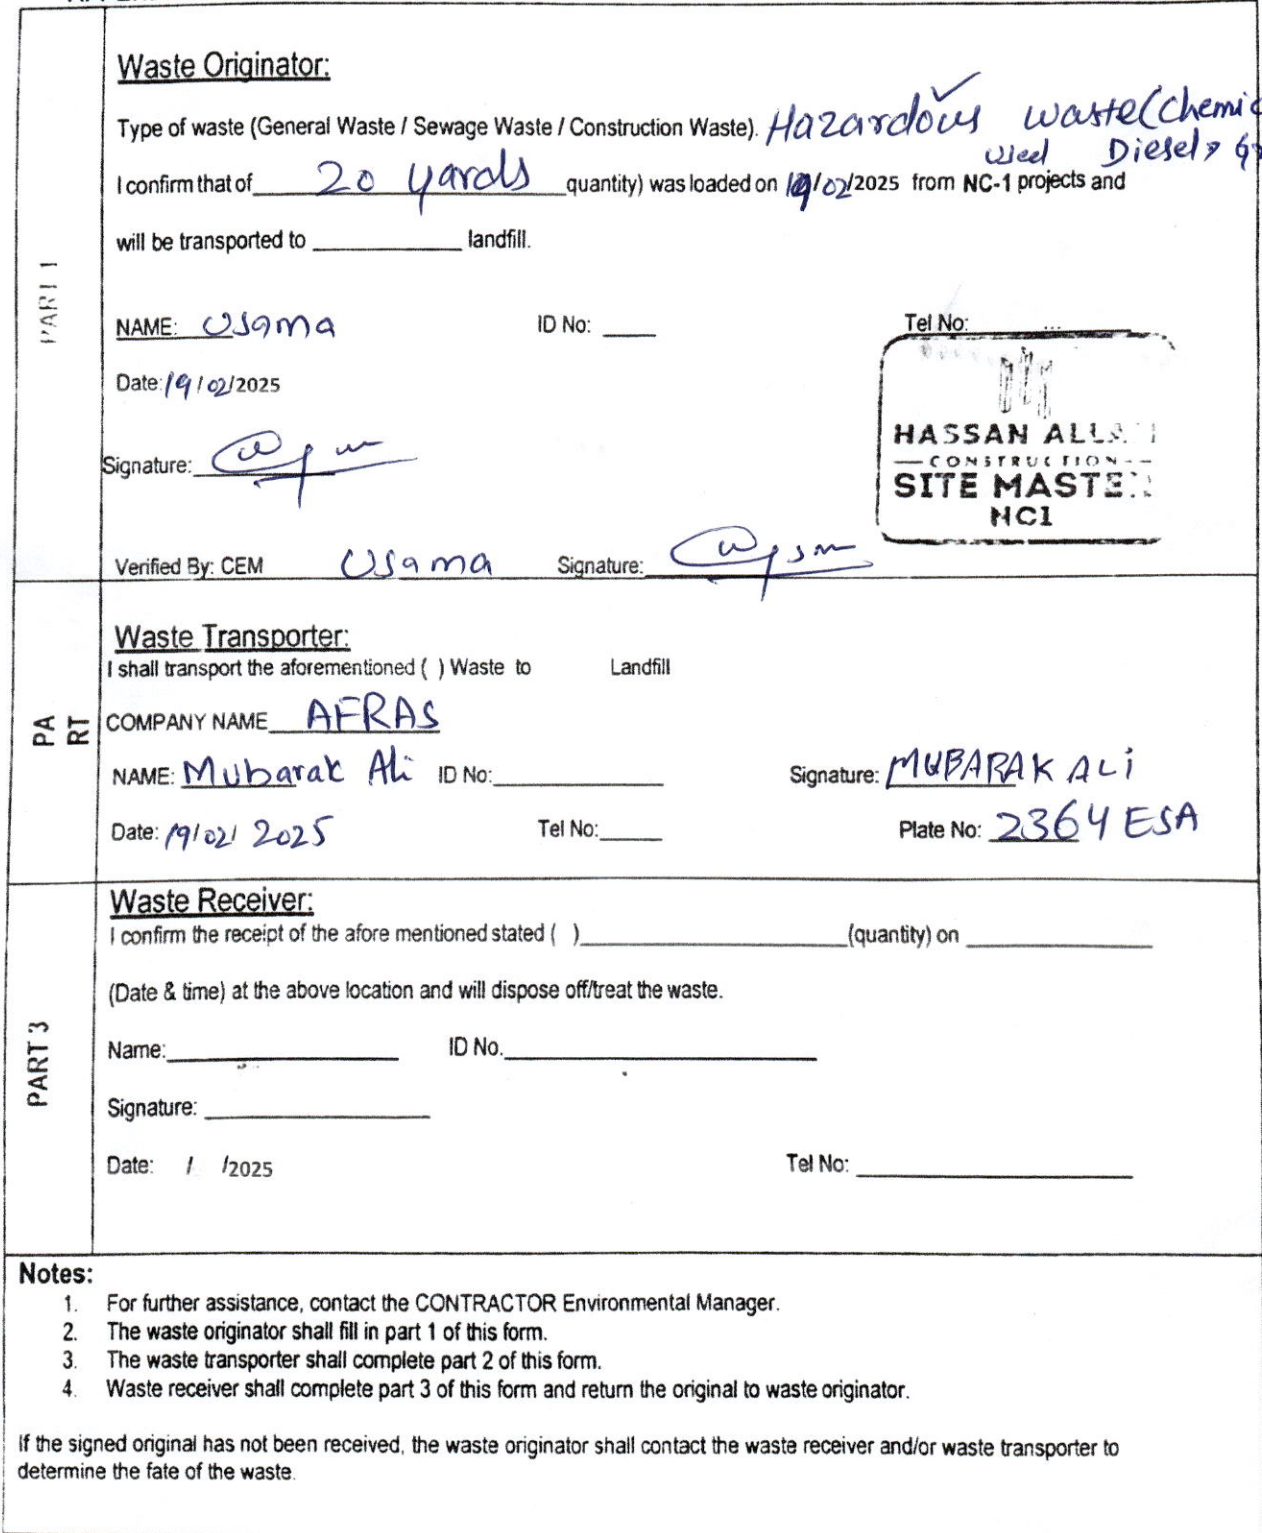 PART 1
Waste Originator:
Type of waste (General Waste / Sewage Waste / Construction Waste). Hazardous waste (Chemic
used Diesel,
I confirm that of 20 yards quantity) was loaded on 19/02/2025 from NC-1 projects and
will be transported to ____________ landfill.
NAME: Usama ID No: ____ Tel No: ____
Date: 19/02/2025
HASSAN ALLA
CONSTRUCTION
SITE MASTER
NC1
Signature:
Verified By: CEM Usama Signature:
PA
RT
Waste Transporter:
I shall transport the aforementioned ( ) Waste to Landfill
COMPANY NAME AFRAS
NAME: Mubarak Ali ID No: ____ Signature: MUBARAK ALi
Date: 19/02/ 2025 Tel No: ____ Plate No: 2364 ESA
PART 3
Waste Receiver:
I confirm the receipt of the afore mentioned stated ( ) ____ (quantity) on ____
(Date & time) at the above location and will dispose off/treat the waste.
Name: ____ ID No. ____
Signature: ____
Date: / /2025 Tel No: ____
Notes:
1. For further assistance, contact the CONTRACTOR Environmental Manager.
2. The waste originator shall fill in part 1 of this form.
3. The waste transporter shall complete part 2 of this form.
4. Waste receiver shall complete part 3 of this form and return the original to waste originator.
If the signed original has not been received, the waste originator shall contact the waste receiver and/or waste transporter to
determine the fate of the waste.